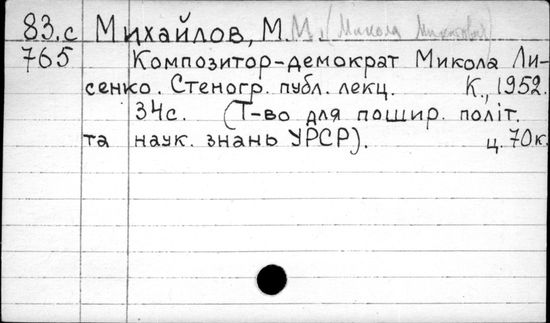 83.с Михайлов, М.М. (Микола
765 Композитор-демократ Микола Ли-
сенко. Стеногр. публ. лекц. К., 1952.
34с. (Т-во для пошир. політ.
та наук. знань УРСР). ц. 70к.